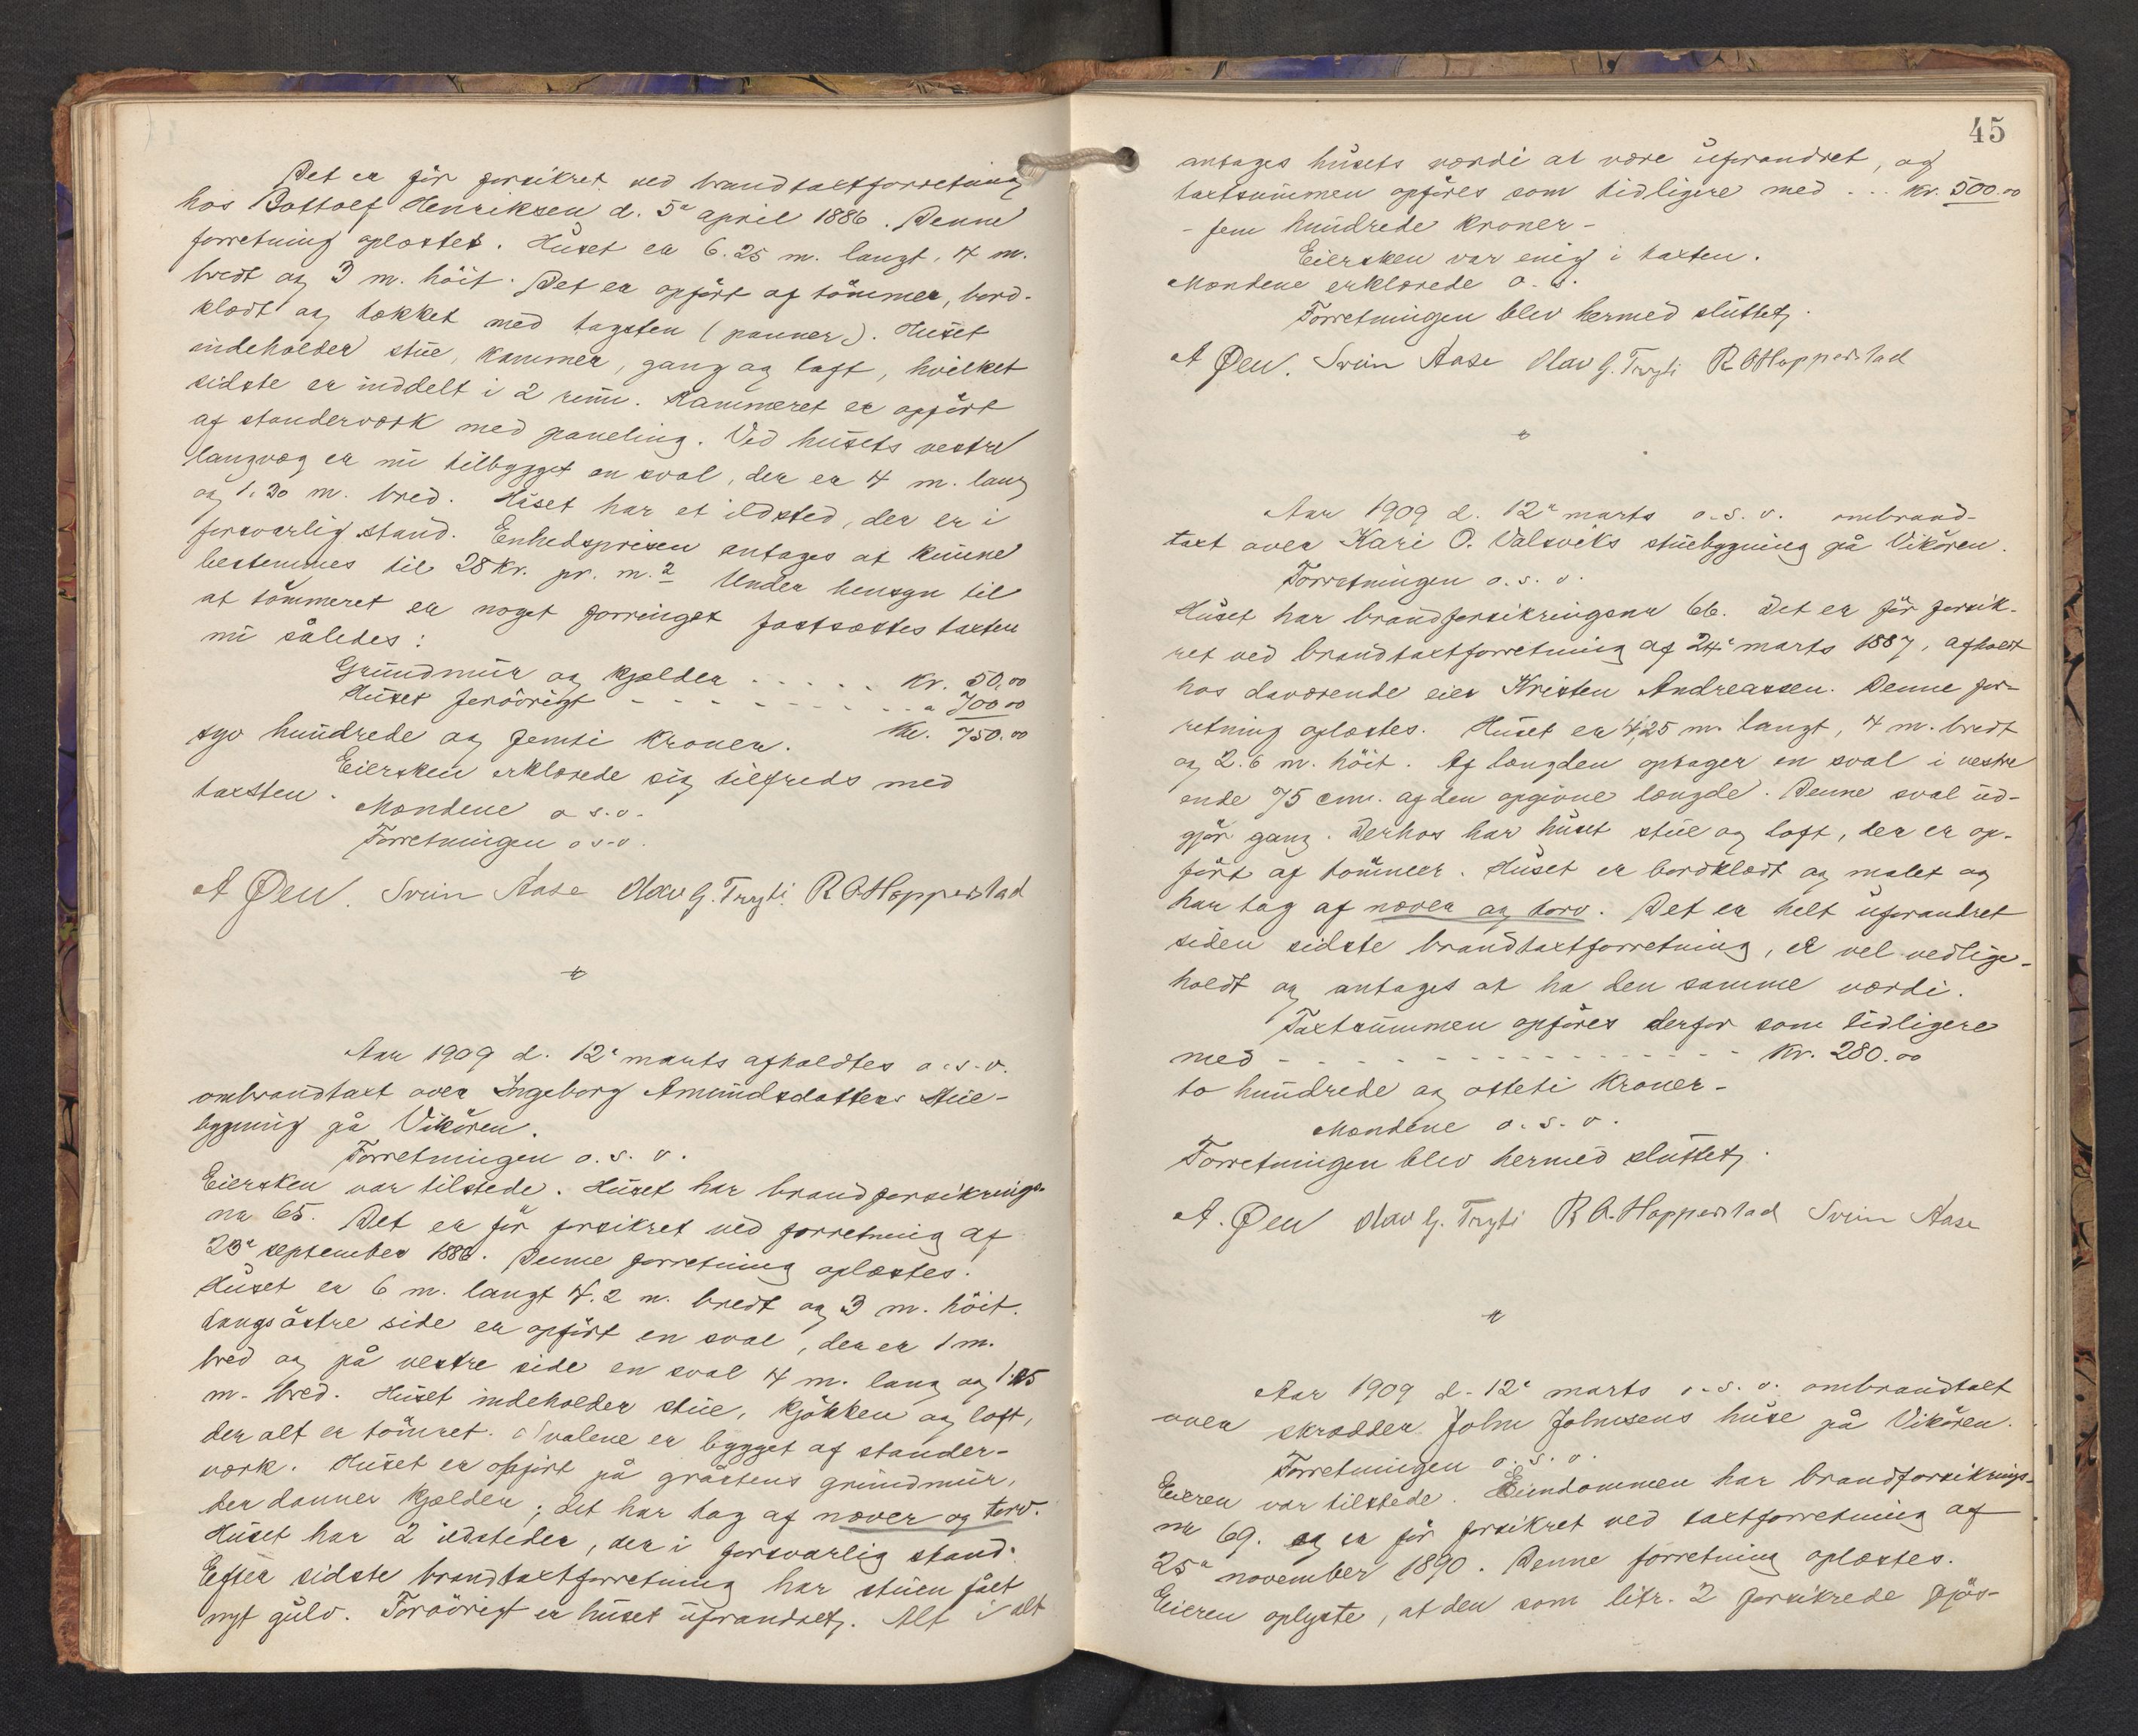 Det er før forsikret ved brandtaxtforretning
hos Bottolf Henriksen d. 5te april 1886. Denne
forretning oplæstes. Huset er 6.25 m. langt, 4 m.
bredt og 3 m. höit. Det er opfört af tömmer, bord-
klædt og tækket med tagsten (panner). Huset
indeholder stue, kammer, gang og loft, hvilket
sidste er inddelt i 2 rum. Kammeret er opfört
af standerværk med paneling. Ved husets vestre
langvæg er nu tilbygget en sval, der er 4 m. lang
og 1.30 m. bred. Huset har et ildsted, der er i
forsvarlig stand. Enhedsprisen antages at kunne
bestemmes til 28 kr. pr. m.2 Under hensyn til
at tömmeret er noget forringet fastsættes taxten
nu således:
Grundmur og kjælder . . . . . kr. 50.00
Huset forövrigt - - - - - - - - - " 700.00
syv hundrede og femti kroner. Kr. 750.00
Eiersken erklærede sig tilfreds med
taxsten. Mændene o s.v.
Forretningen o s.v.
A Øen. Svein Aase Olav G. Tryti R O Hopperstad
Aar 1909 d. 12te marts afholdtes o.s.v.
ombrandtaxt over Ingeborg Amundsdatters stue-
bygning på Vikören.
Forretningen o.s.v.
Eiersken var tilstede. Huset har brandforsikrings-
nr 65. Det er för forsikret ved forretning af
23de september 1886. Denne forretning oplæstes.
Huset er 6 m. langt 4.2 m. bredt og 3 m. höit.
Langs östre side er opfört en sval, der er 1 m.
bred og på vestre side en sval 4 m. lang og 1.25
m. bred. Huset indeholder stue, kjökken og loft,
der alt er tömret. Svalene er bygget af stander-
værk. Huset er opfört på gråstens grundmur,
der danner kjælder; det har tag af næver og torv.
Huset har 2 ildsteder, der i forsvarlig stand.
Efter sidste brandtaxtforretning har stuen fået
nyt gulv. Forövrigt er huset uforandret. Alt i alt
45
antages husets værdi at være uforandret, og
taxtsummen opföres som tidligere med . . . kr. 500.00
- fem hundrede kroner -
Eiersken var enig i taxten.
Mændene erklærede o. s.
Forretningen blev hermed sluttet.
A Øen. Svein Aase Olav G. Tryti R O Hopperstad
Aar 1909 d. 12te marts o.s.v. ombrand-
taxt over Kari O. Valsviks stuebygning på Vikören.
Forretningen o.s.v.
Huset har brandforsikringsnr 66. Det er för forsik-
ret ved brandtaxtforretning af 24de marts 1887, afholdt
hos daværende eier Kristen Andreassen. Denne for-
retning oplæstes. Huset er 4,25 m. langt, 4 m. bredt
og 2.6 m. höit. Af længden optager en sval i vestre
ende 75 cm. af den opgivne længde. Denne sval ud-
gjör gang. Derhos har huset stue og loft, der er op-
fört af tömmer. Huset er bordklædt og malet og
har tag af næver og torv. Det er helt uforandret
siden sidste brandtaxtforretning, er vel vedlige-
holdt og antages at ha den samme værdi.
Taxtsummen opföres derfor som tidligere
med - - - - - - - - - - - - - - - kr. 280.00
to hundrede og otteti kroner -
Mændene o.s.v.
Forretningen blev hermed sluttet.
A. Øen Olav G. Tryti R O. Hopperstad Svein Aase
Aar 1909 d. 12te marts o.s.v. ombrandtaxt
over skrædder John Johnsens huse på Vikören.
Forretningen o.s.v.
Eieren var tilstede. Eiendommen har brandforsikrings-
nr 69. og er för forsikret ved taxtforretning af
25de november 1890. Denne forretning oplæstes.
Eieren oplyste, at den som litr. 2 forsikrede fjös-